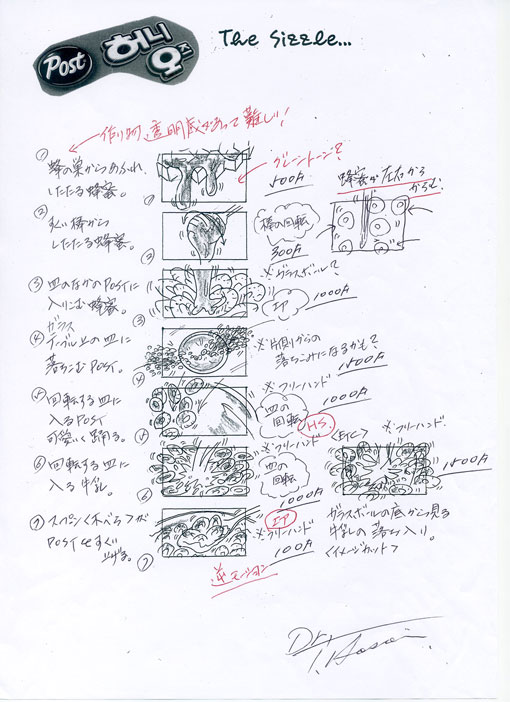 Post
허니
오즈
The Sizzle...
透明感があって難しい!
①
蜂の巣からあふれ
したたる蜂蜜。
①
グレートーン?
500A
蜂蜜が左右から
からむ
②
丸い棒から
したたる蜂蜜。
②
棒の回転
300A
③ 皿のなかのPOSTに
入りこむ蜂蜜。
③
※グラスボール?
エア
1000A
④
ガラス
テーブル上の皿に
落ちこむPOST。
④
※片側からの
落ちこみになるかも?
1500A
⑤ 回転する皿に
入るPOST
可愛いく踊る。
⑤
※フリーハンド
1000A
皿の
回転
H.S.
⑥ 回転する皿に
入る牛乳。
⑥
※フリーハンド
皿の
回転
1000A
<ETC>
※フリーハンド
1500A
ガラスボールの底から見る
牛乳の落ち入り。
<イメージカット>
⑦ スプーン<木べら>が
POSTをすくい
上げる。
⑦
エア
※フリーハンド
100A
逆モーション
Dr.